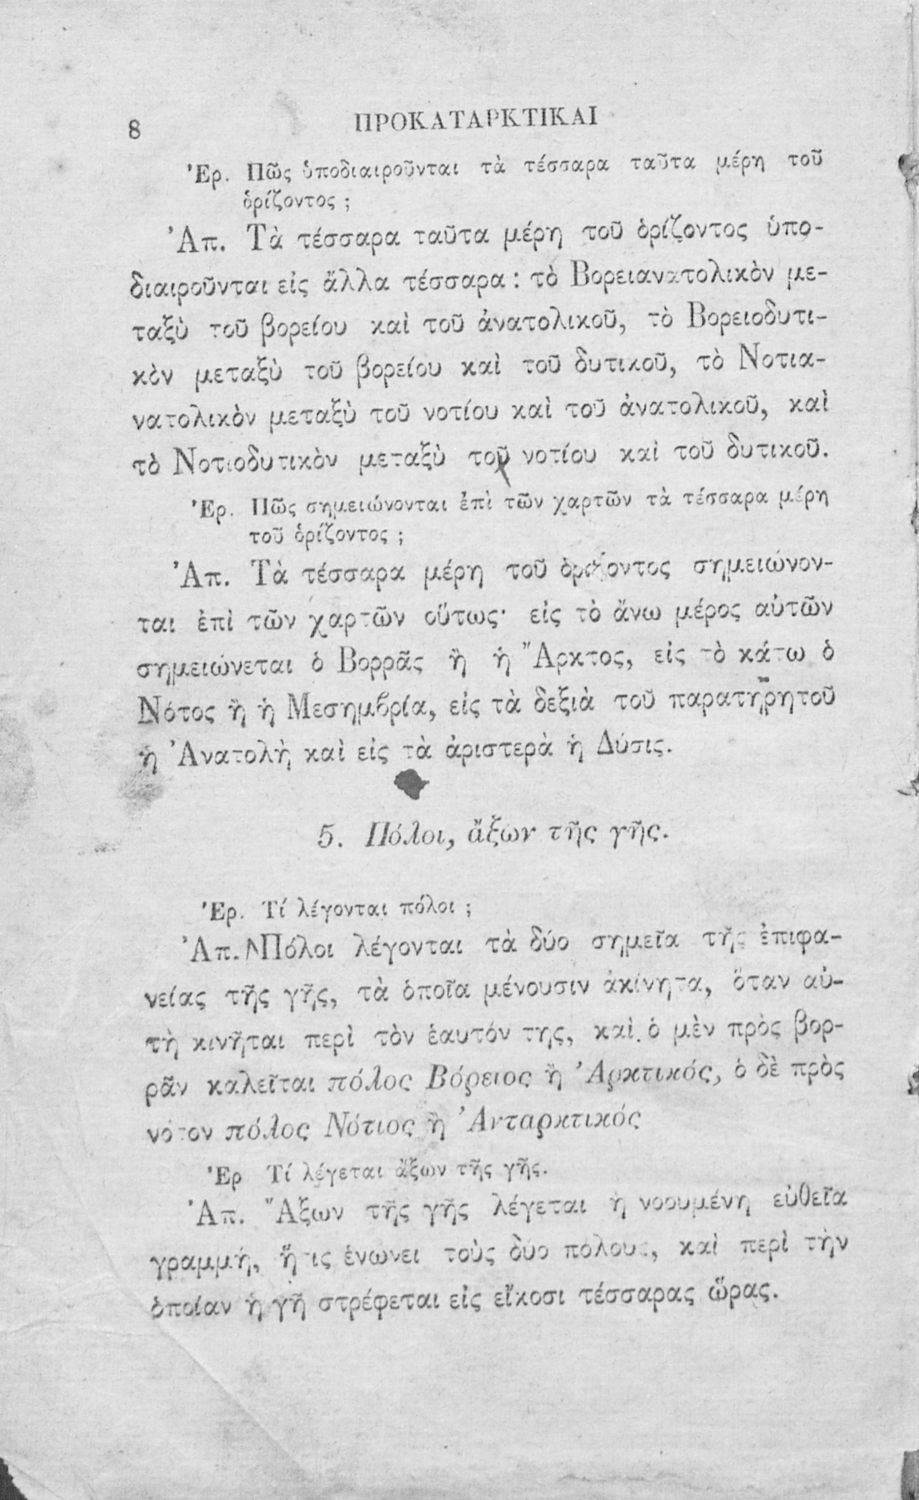 8
ΠΡΟΚΑΤΑΡΚΤΙΚΑΙ
Ἐρ. Πῶς ὑποδιαιροῦνται τὰ τέσσαρα ταῦτα μέρη τοῦ
ὁρίζοντος ;
Ἀπ. Τὰ τέσσαρα ταῦτα μέρη τοῦ ὁρίζοντος ὑπο-
διαιροῦνται εἰς ἄλλα τέσσαρα : τὸ Βορειανατολικὸν με-
ταξὺ τοῦ βορείου καὶ τοῦ ἀνατολικοῦ, τὸ Βορειοδυτι-
κὸν μεταξὺ τοῦ βορείου καὶ τοῦ δυτικοῦ, τὸ Νοτια-
νατολικὸν μεταξὺ τοῦ νοτίου καὶ τοῦ ἀνατολικοῦ, καὶ
τὸ Νοτιοδυτικὸν μεταξὺ τοῦ νοτίου καὶ τοῦ δυτικοῦ.
Ἐρ. Πῶς σημειώνονται ἐπὶ τῶν χαρτῶν τὰ τέσσαρα μέρη
τοῦ ὁρίζοντος ;
Ἀπ. Τὰ τέσσαρα μέρη τοῦ ὁρίζοντος σημειώνον-
ται ἐπὶ τῶν χαρτῶν οὕτως· εἰς τὸ ἄνω μέρος αὐτῶν
σημειώνεται ὁ Βορρᾶς ἢ ἡ Ἄρκτος, εἰς τὸ κάτω ὁ
Νότος ἢ ἡ Μεσημβρία, εἰς τὰ δεξιὰ τοῦ παρατηρητοῦ
ἡ Ἀνατολὴ καὶ εἰς τὰ ἀριστερὰ ἡ Δύσις.
5. Πόλοι, ἄξων τῆς γῆς.
Ἐρ. Τί λέγονται πόλοι ;
Ἀπ. Πόλοι λέγονται τὰ δύο σημεῖα τῆς ἐπιφα-
νείας τῆς γῆς, τὰ ὁποῖα μένουσιν ἀκίνητα, ὅταν αὐ-
τὴ κινῆται περὶ τὸν ἑαυτόν της, καὶ ὁ μὲν πρὸς βορ-
ρᾶν καλεῖται πόλος Βόρειος ἢ Ἀρκτικός, ὁ δὲ πρὸς
νότον πόλος Νότιος ἢ Ἀνταρκτικός
Ἐρ Τί λέγεται ἄξων τῆς γῆς.
Ἀπ. Ἄξων τῆς γῆς λέγεται ἡ νοουμένη εὐθεῖα
γραμμή, ἥτις ἑνώνει τοὺς δύο πόλους, καὶ περὶ τὴν
ὁποίαν ἡ γῆ στρέφεται εἰς εἴκοσι τέσσαρας ὥρας.